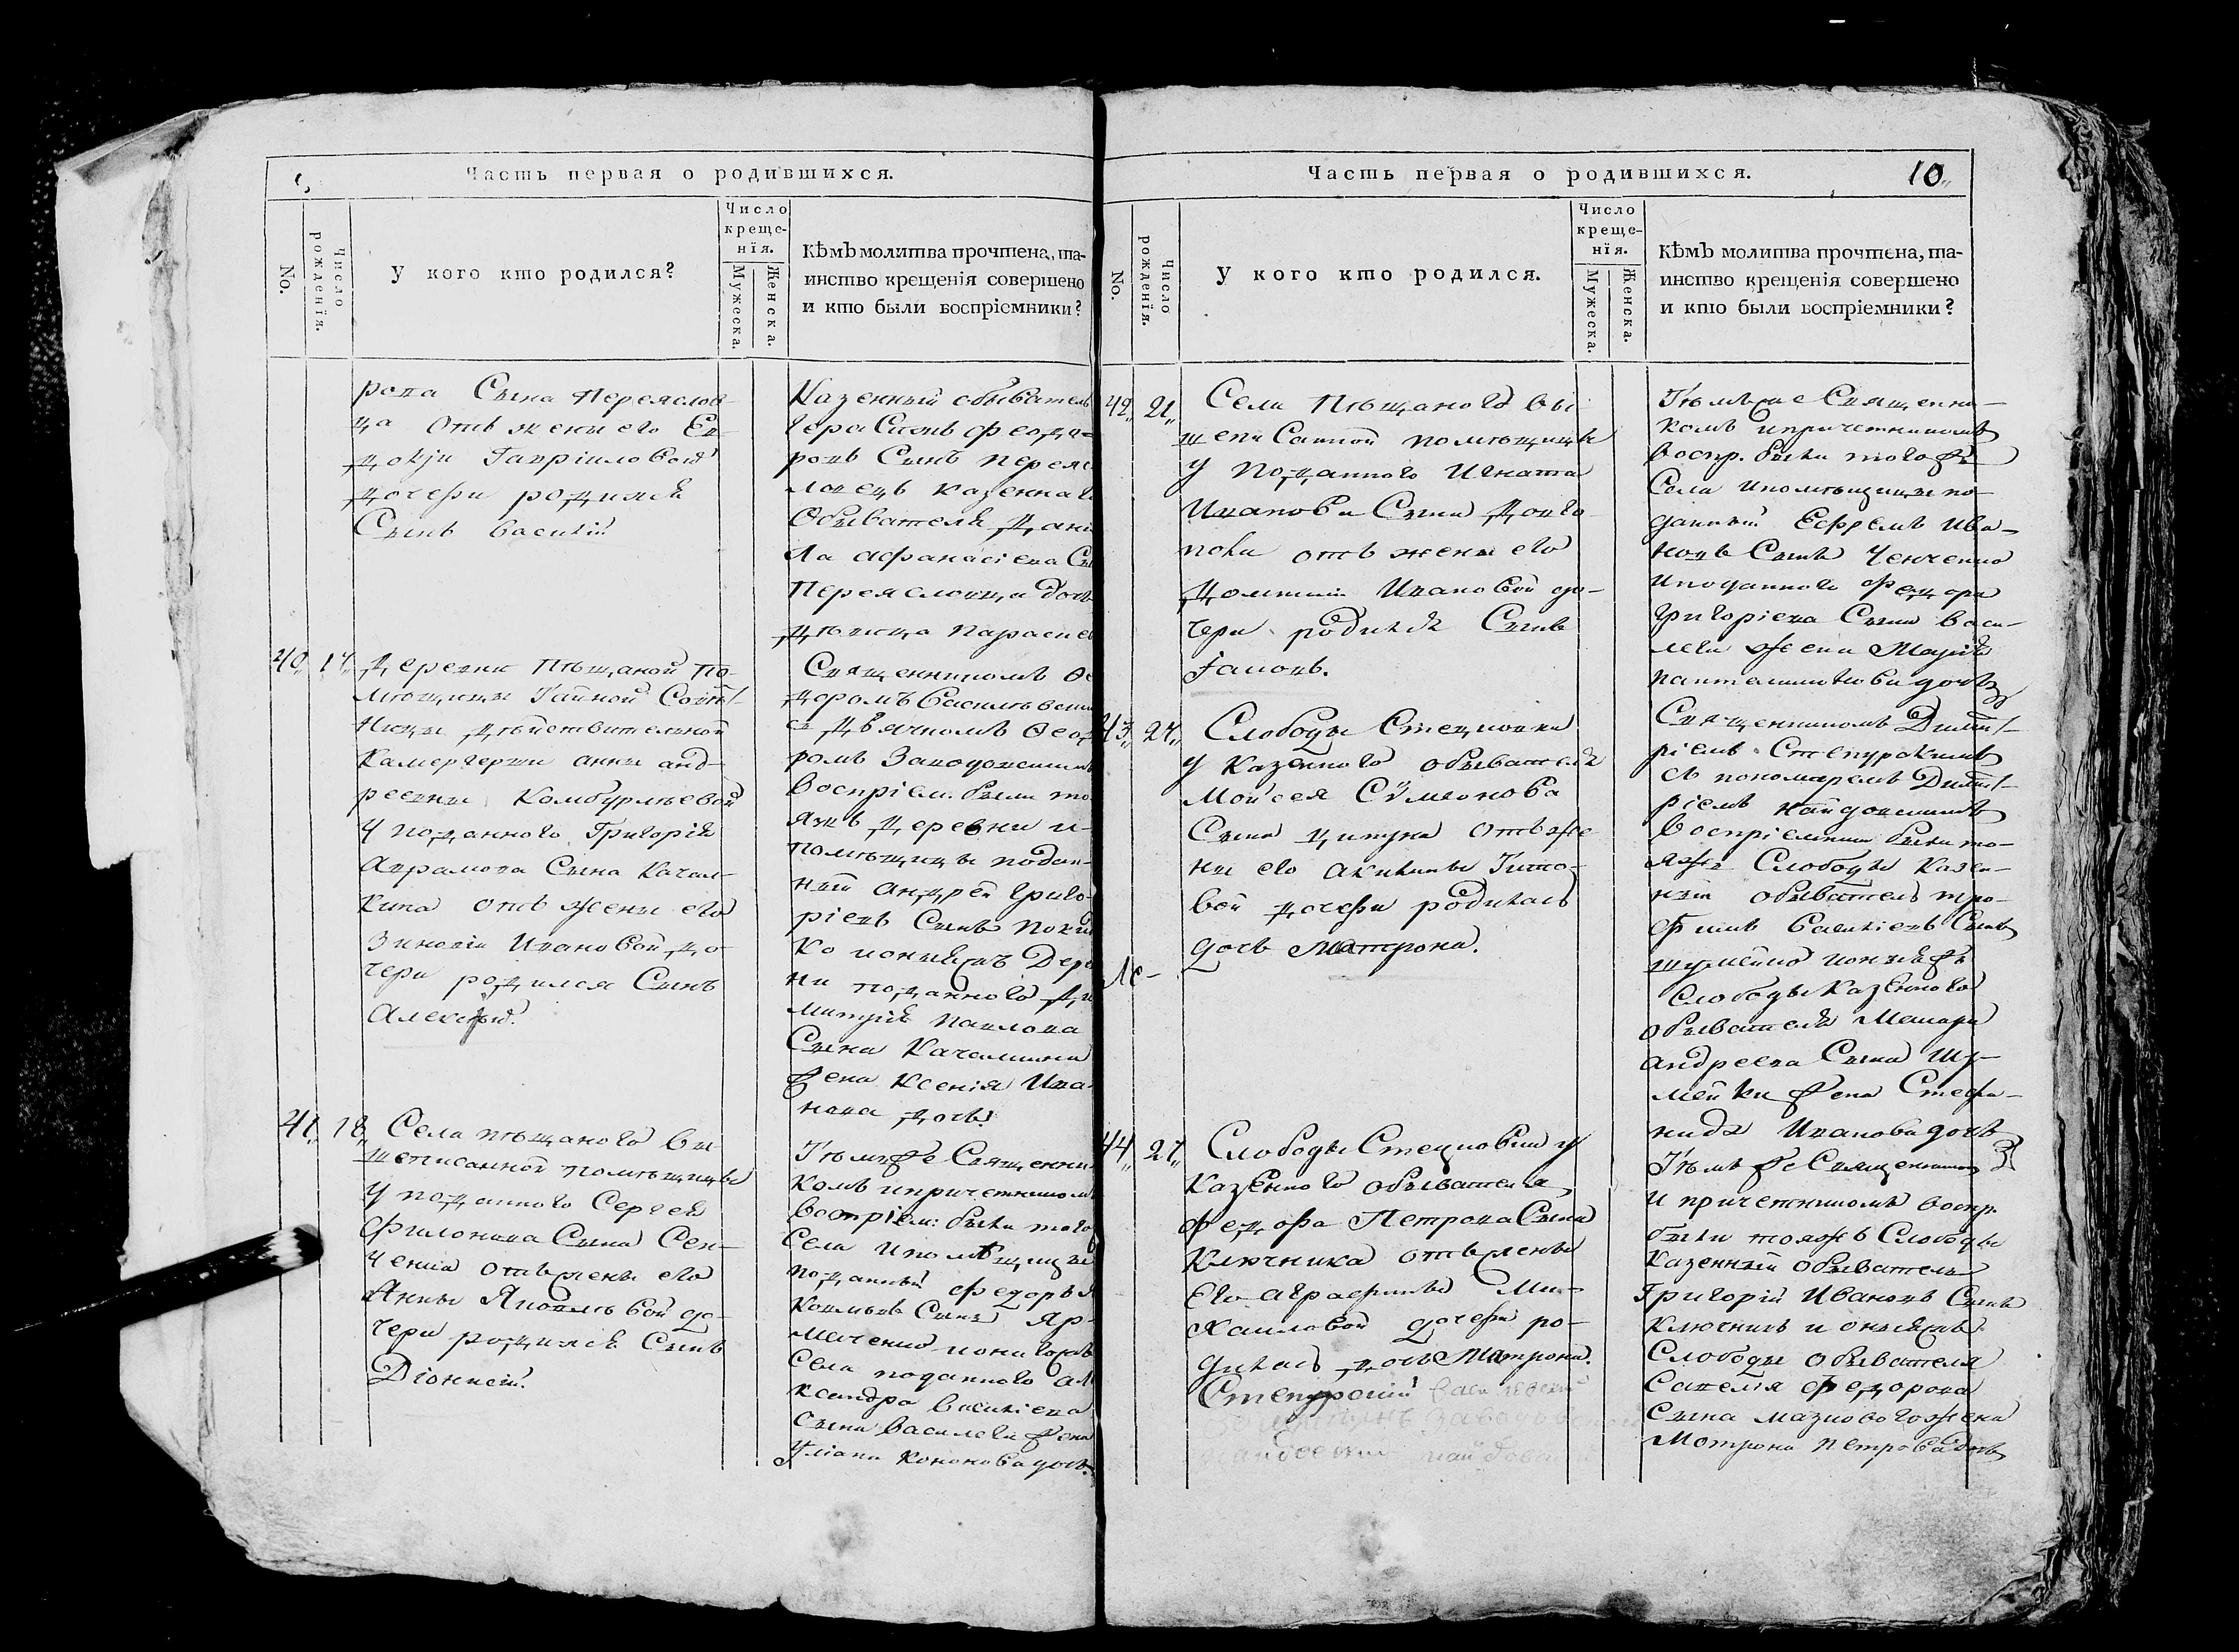 Часть первая о родившихся.
No.
Число рожденїя.
У кого кто родился?
Число
креще-
нїя.
Мужеска.
Женска.
Кѣмъ молитва прочтена, та-
инство крещенїя совершено
и кто были воспрїемники?
рова Сына Переяслов-
ца отъ жены его Ев-
докїи Гаврїиловой
дочери родился
Сынъ Василій
Казенный обыватель
Герасимъ Феодо-
ровъ Сынъ Переяс-
ловецъ казеннаго
Обывателя Дани
ла Афанасїева Сы
Переясловца дочь
дѣвица Параске
40. 17. Деревни Пѣщаной По-
мѣщицы Тайной Совѣт-
ницы дѣйствительной
Камергерши Анны Анд-
реевны Комбурлѣевой
у подданного Григорїя
Аврамова Сына Качал-
кина отъ жены его
Зиновїи Ивановой до-
чери родился Сынъ
Алексѣй.
Священникомъ Ѳе
доромъ Васильевским
съ дьячкомъ Ѳеод
ромъ Заводовским
воспрїем. были то
яжъ деревни и
помѣщицы поддан-
ный Андрей Григо-
рїевъ Сынъ
ко и онияжъ Дере
ни подданного Ди
митрія Павлова
Сына Качалкина
жена Ксенїя Ива
нова дочь
41. 18. Села Пѣщаного вы-
шеписанной помѣщицы
у подданного Сергея
Филонова Сына Сен-
ченка отъ жены его
Анны Яковлевой до-
чери родился Сынъ
Дїонисій.
Тѣмъже Священни
комъ и причетником
воспрїем: были того
Села и помѣщицы
подданный Федоръ Я
ковлевъ Сынъ Яр-
маченко и онагожъ
Села подданного Ал
ксандра Василїева
Сына Василеги жена
Улїани Кононова дочь.
Часть первая о родившихся.
10.
No.
Число рожденїя.
У кого кто родился.
Число
креще-
нїя.
Мужеска.
Женска.
Кѣмъ молитва прочтена, та-
инство крещенїя совершено
и кто были воспрїемники?
42. 21. Села Пѣщаного вы-
шеписанной помѣщицы
у подданного Игната
Иванова Сына Довго-
пола отъ жены его
Домникїи Ивановой до-
чери родился Сынъ
Іаковъ.
Тѣмъже Священни-
комъ и причетникомъ
воспр. были тогожъ
Села и помѣщицы по-
данный Ефремъ Ива-
новъ Сынъ Ченченко
и поданного Федора
Григорїева Сына Васи-
леги жена Марїя
Пантелимонова дочь
43. 24. Слободы Стецковки
у казенного обывателя
Мойсея Сѵмеонова
Сына Ципуна отъ же-
ны его Акилины Тито-
вой дочери родилась
дочь Матрона.
Священникомъ Димит-
рїемъ Степурскимъ
съ пономаремъ Димит-
рїемъ Найдовскимъ
воспрїемники были то-
яжъ Слободы Казен-
ный обыватель Тро-
фимъ Василїевъ Сынъ
Шумейко и онияжъ
Слободы Казенного
обывателя Макара
Андреева Сына Шу-
мейки жена Стефа-
нида Иванова дочь
44. 27. Слободы Стецковки у
Казенного обывателя
Федора Петрова Сына
Ключника отъ жены
Его Аграфины Ми-
хаиловой дочери ро-
дилась дочь Матрона.
Степурскій Василевский
Заводовский
Найдовский
Тѣмъ же Священником
и причетникомъ воспр.
были тояжъ Слободы
Казенный обыватель
Григорій Ивановъ Сынъ
Ключникъ и онияжъ
Слободы обывателя
Савелїя Федорова
Сына Мазнового жена
Мотрона Петрова дочь